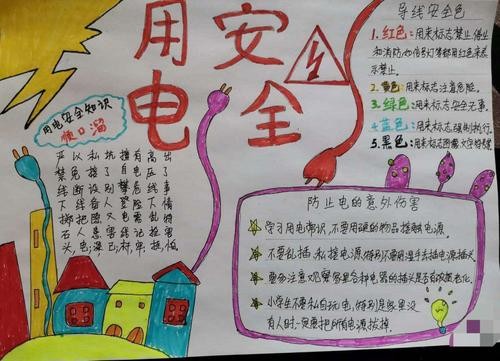 用电安全
导线安全色
1.红色:用来标志禁止、停止
和消防,如信号灯等都用红色来表
示禁止。
2.黄色:用来标志注意危险。
3.绿色:用来标志安全无事。
4.蓝色:用来标志强制执行。
5.黑色:用来标志图像、文字符号
用电安全知识
顺口溜
严禁线下掷石头,
以免断线把人电;
私接设备
了别人又害己;
擅自攀登电线杆,
有电危险需记牢,
高压线下乱挂,
出了事情特
防止电的意外伤害
学习用电常识,不要用硬的物品接触电源。
不要乱插、私接电源,特别不要用湿手去插电源插头。
要多注意观察家里各种电器的插头是否有破损老化。
小学生不要私自玩电,特别是家里没
有人时,一定要把所有电源拔掉。